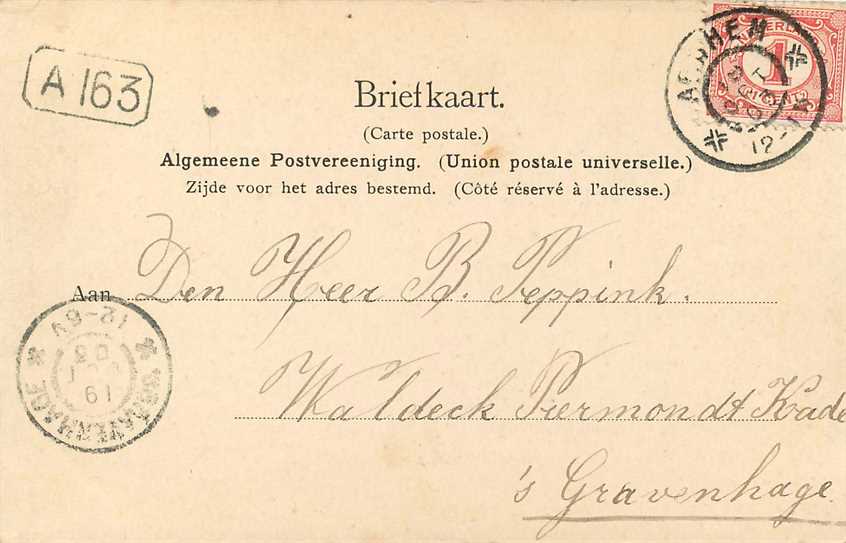 A 163
NEDERLAND
1
CENT
ARNHEM
12-
Briefkaart.
(Carte postale.)
Algemeene Postvereeniging. (Union postale universelle.)
Zijde voor het adres bestemd. (Côté réservé à l'adresse.)
Aan Den Heer B. Peppink.
Waldeck Piermondt Kade
's Gravenhage.
'S GRAVENHAGE
12-6V
19
03